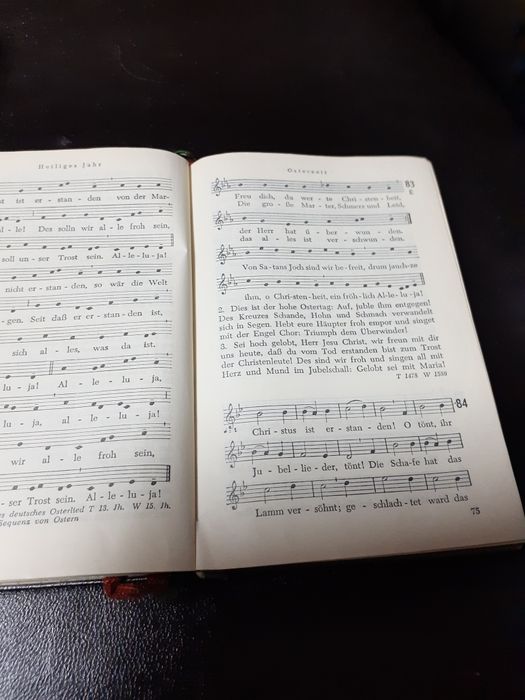 Heiliges Jahr
ist er - stan - den von der Mar-
Des solln wir al - le froh sein,
soll un - ser Trost sein. Al - le - lu - ja!
nicht er - stan - den, so wär die Welt
- gen. Seit daß er er - stan - den ist,
sich al - les, was da ist.
lu - ja! Al - le - lu - ja,
lu - ja, al - le - lu - ja!
wir al - le froh sein,
- ser Trost sein. Al - le - lu - ja!
deutsches Osterlied T 13. Jh. W 15. Jh.
Sequenz von Ostern
Osterzeit
83
Freu dich, du wer - te Chri - sten - heit,
Die gro - ße Mar - ter, Schmerz und Leid,
der Herr hat ü - ber - wun - den.
das al - les ist ver - schwun - den.
Von Sa - tans Joch sind wir be - freit, drum jauch - ze
ihm, o Chri - sten - heit, ein fröh - lich Al - le - lu - ja!
2. Dies ist der hohe Ostertag: Auf, juble ihm entgegen!
Des Kreuzes Schande, Hohn und Schmach verwandelt
sich in Segen. Hebt eure Häupter froh empor und singet
mit der Engel Chor: Triumph dem Überwinder!
3. Sei hoch gelobt, Herr Jesu Christ, wir freun mit dir
uns heute, daß du vom Tod erstanden bist zum Trost
der Christenleute! Des sind wir froh und singen all mit
Herz und Mund im Jubelschall: Gelobt sei mit Maria!
T 1478 W 1550
84
Chri - stus ist er - stan - den! O tönt, ihr
Ju - bel - lie - der, tönt! Die Schafe hat das
Lamm ver - söhnt; ge - schlach - tet ward das
75